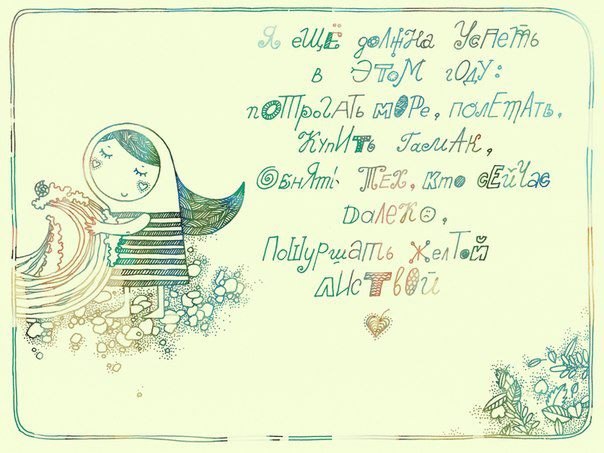 Я ещё должна успеть
в этом году:
потрогать море, полетать,
купить гамак,
обнять тех, кто сейчас
далеко,
пошуршать желтой
листвой